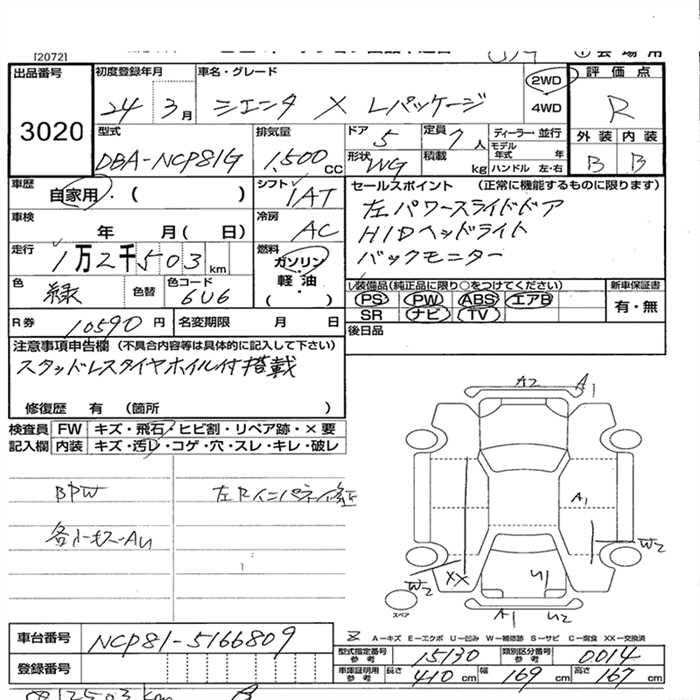 [2072]
出品番号 3020
初度登録年月 24年 3月
車名・グレード シエンタ X Lパッケージ
2WD
4WD
評価点 R
外装 内装
B B
型式 DBA-NCP81G
排気量 1,500 CC
ドア 5
定員 7人
ディーラー・並行
モデル年式 年
形状 WG
積載 kg
ハンドル 左・右
車歴 自家用・( )
シフト IAT
セールスポイント (正常に機能するものに限ります)
左パワースライドドア
HIDヘッドライト
バックモニター
車検 年 月( 日)
冷房 AC
走行 1万2千503km
燃料 ガソリン・軽油・( )
色 緑 色替
色コード 6U6
装備品(純正品に限り○をつけてください)
PS PW ABS エアB
SR ナビ TV
新車保証書
有・無
R券 10590円
名変期限 月 日
後日品
注意事項申告欄 (不具合内容等は具体的に記入して下さい)
スタッドレスタイヤホイル付搭載
修復歴 有 (箇所 )
検査員記入欄
FW キズ・飛石・ヒビ割・リペア跡・×要
内装 キズ・汚レ・コゲ・穴・スレ・キレ・破レ
BPW
A2 A1
A1
W2 XX U1 W2
スペア
A1 U2
A－キズ E－エクボ U－凹み W－補修跡 S－サビ C－腐食 XX－交換済
車台番号 NCP81-5166809
登録番号
型式指定番号 参考 15130
類別区分番号 参考 0014
車庫証明用 参考 長さ 410cm 幅 169cm 高さ 167cm